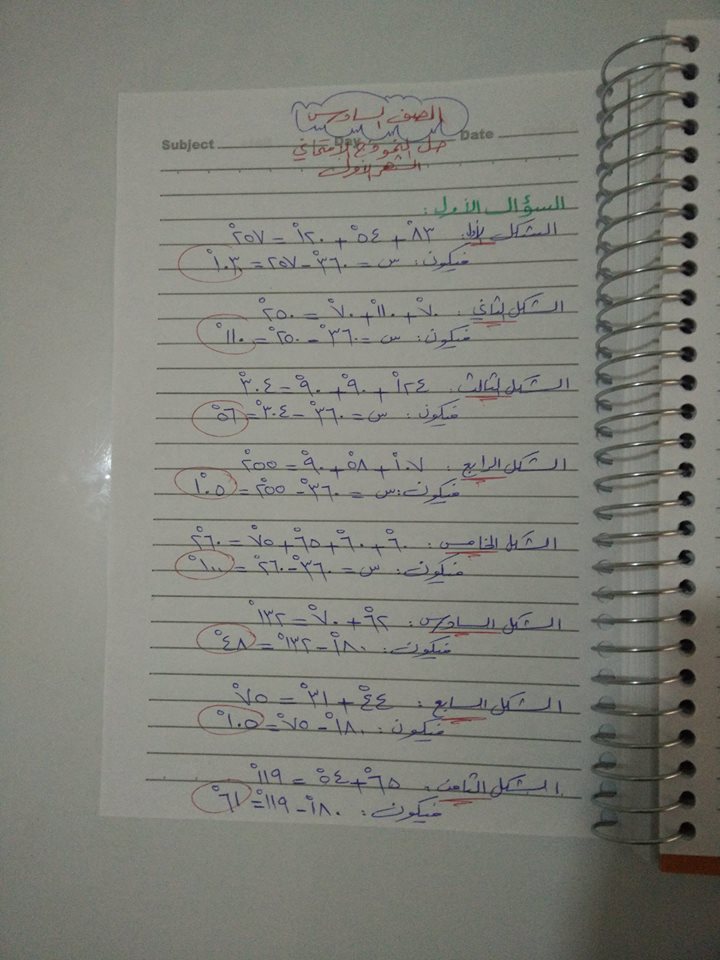 الصف السادس
Subject Day Date
حل النموذج الامتحاني
الشهر الأول
السؤال الأول:
الشكل الأول: ٨٣° + ٥٤° + ١٢٠° = ٢٥٧°
فيكون: س = ٣٦٠° - ٢٥٧° = ١٠٣°
الشكل الثاني: ٧٠° + ١١٠° + ٧٠° = ٢٥٠°
فيكون: س = ٣٦٠° - ٢٥٠° = ١١٠°
الشكل الثالث: ١٢٤° + ٩٠° + ٩٠° = ٣٠٤°
فيكون: س = ٣٦٠° - ٣٠٤° = ٥٦°
الشكل الرابع: ١٠٧° + ٥٨° + ٩٠° = ٢٥٥°
فيكون: س = ٣٦٠° - ٢٥٥° = ١٠٥°
الشكل الخامس: ٦٠° + ٦٠° + ٦٥° + ٧٥° = ٢٦٠°
فيكون: س = ٣٦٠° - ٢٦٠° = ١٠٠°
الشكل السادس: ٦٢° + ٧٠° = ١٣٢°
فيكون: ١٨٠° - ١٣٢° = ٤٨°
الشكل السابع: ٤٤° + ٣١° = ٧٥°
فيكون: ١٨٠° - ٧٥° = ١٠٥°
الشكل الثامن: ٦٥° + ٥٤° = ١١٩°
فيكون: ١٨٠° - ١١٩° = ٦١°